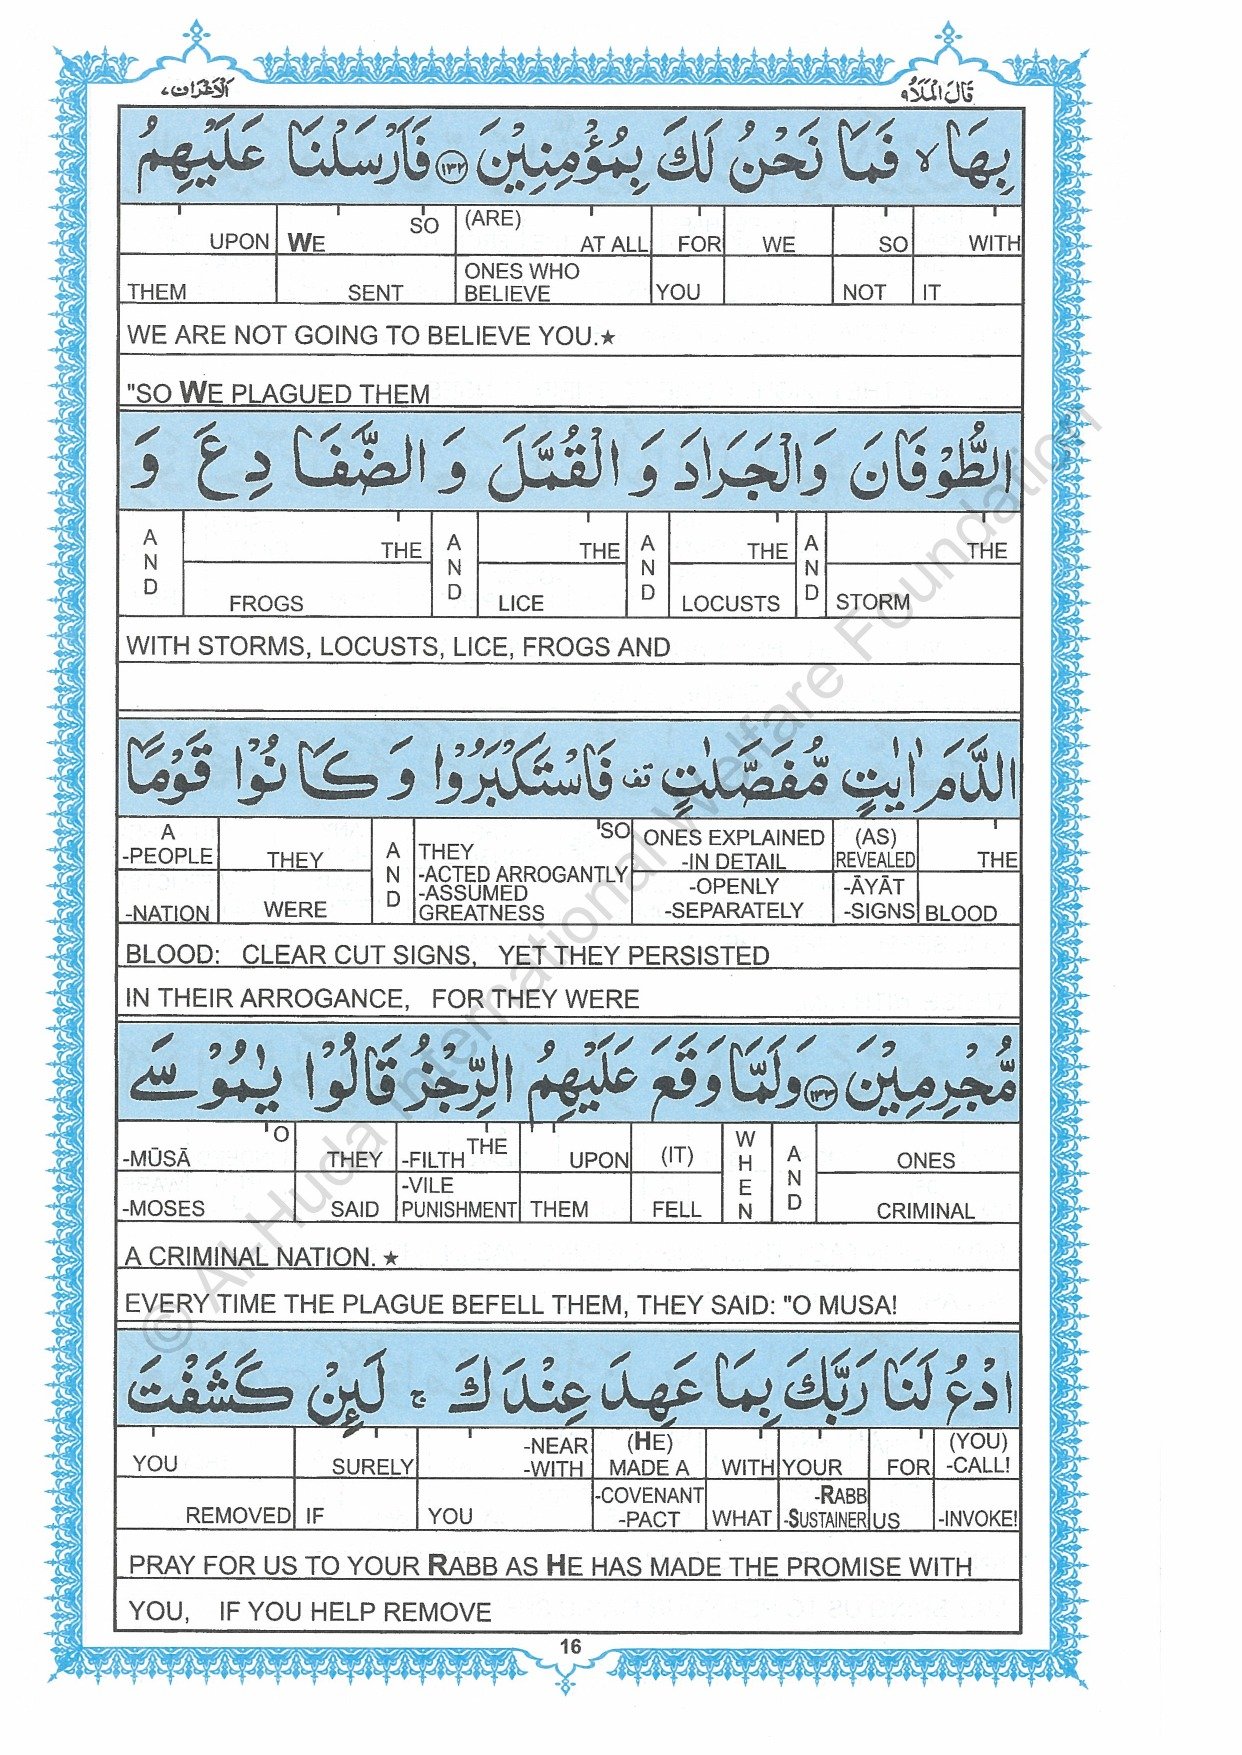 الاعراف ٧
قَالَ الْمَلَاُ ٩
بِهَا ۙ فَمَا نَحْنُ لَكَ بِمُؤْمِنِيْنَ ﴿١٣٢﴾ فَاَرْسَلْنَا عَلَيْهِمُ
UPON WE SO (ARE) AT ALL FOR WE SO WITH
THEM SENT ONES WHO BELIEVE YOU NOT IT
WE ARE NOT GOING TO BELIEVE YOU.★
"SO WE PLAGUED THEM
الطُّوْفَانَ وَالْجَرَادَ وَ الْقُمَّلَ وَ الضَّفَادِعَ وَ
AND THE AND THE AND THE AND THE
FROGS LICE LOCUSTS STORM
WITH STORMS, LOCUSTS, LICE, FROGS AND
الدَّمَ اٰيٰتٍ مُّفَصَّلٰتٍ قف فَاسْتَكْبَرُوْا وَ كَانُوْا قَوْمًا
A -PEOPLE THEY AND THEY SO ONES EXPLAINED -IN DETAIL (AS) REVEALED THE
-NATION WERE -ACTED ARROGANTLY -ASSUMED GREATNESS -OPENLY -SEPARATELY -ĀYĀT -SIGNS BLOOD
BLOOD: CLEAR CUT SIGNS, YET THEY PERSISTED
IN THEIR ARROGANCE, FOR THEY WERE
مُّجْرِمِيْنَ ﴿١٣٣﴾ وَلَمَّا وَقَعَ عَلَيْهِمُ الرِّجْزُ قَالُوْا يٰمُوْسَى
-MŪSĀ O THEY -FILTH THE UPON (IT) WHEN AND ONES
-MOSES SAID -VILE PUNISHMENT THEM FELL CRIMINAL
A CRIMINAL NATION. ★
EVERY TIME THE PLAGUE BEFELL THEM, THEY SAID: "O MUSA!
ادْعُ لَنَا رَبَّكَ بِمَا عَهِدَ عِنْدَكَ ۚ لَىِٕنْ كَشَفْتَ
YOU SURELY -NEAR -WITH (HE) MADE A WITH YOUR FOR (YOU) -CALL!
REMOVED IF YOU -COVENANT -PACT WHAT -RABB -SUSTAINER US -INVOKE!
PRAY FOR US TO YOUR RABB AS HE HAS MADE THE PROMISE WITH
YOU, IF YOU HELP REMOVE
16
© Al-Huda International Welfare Foundation